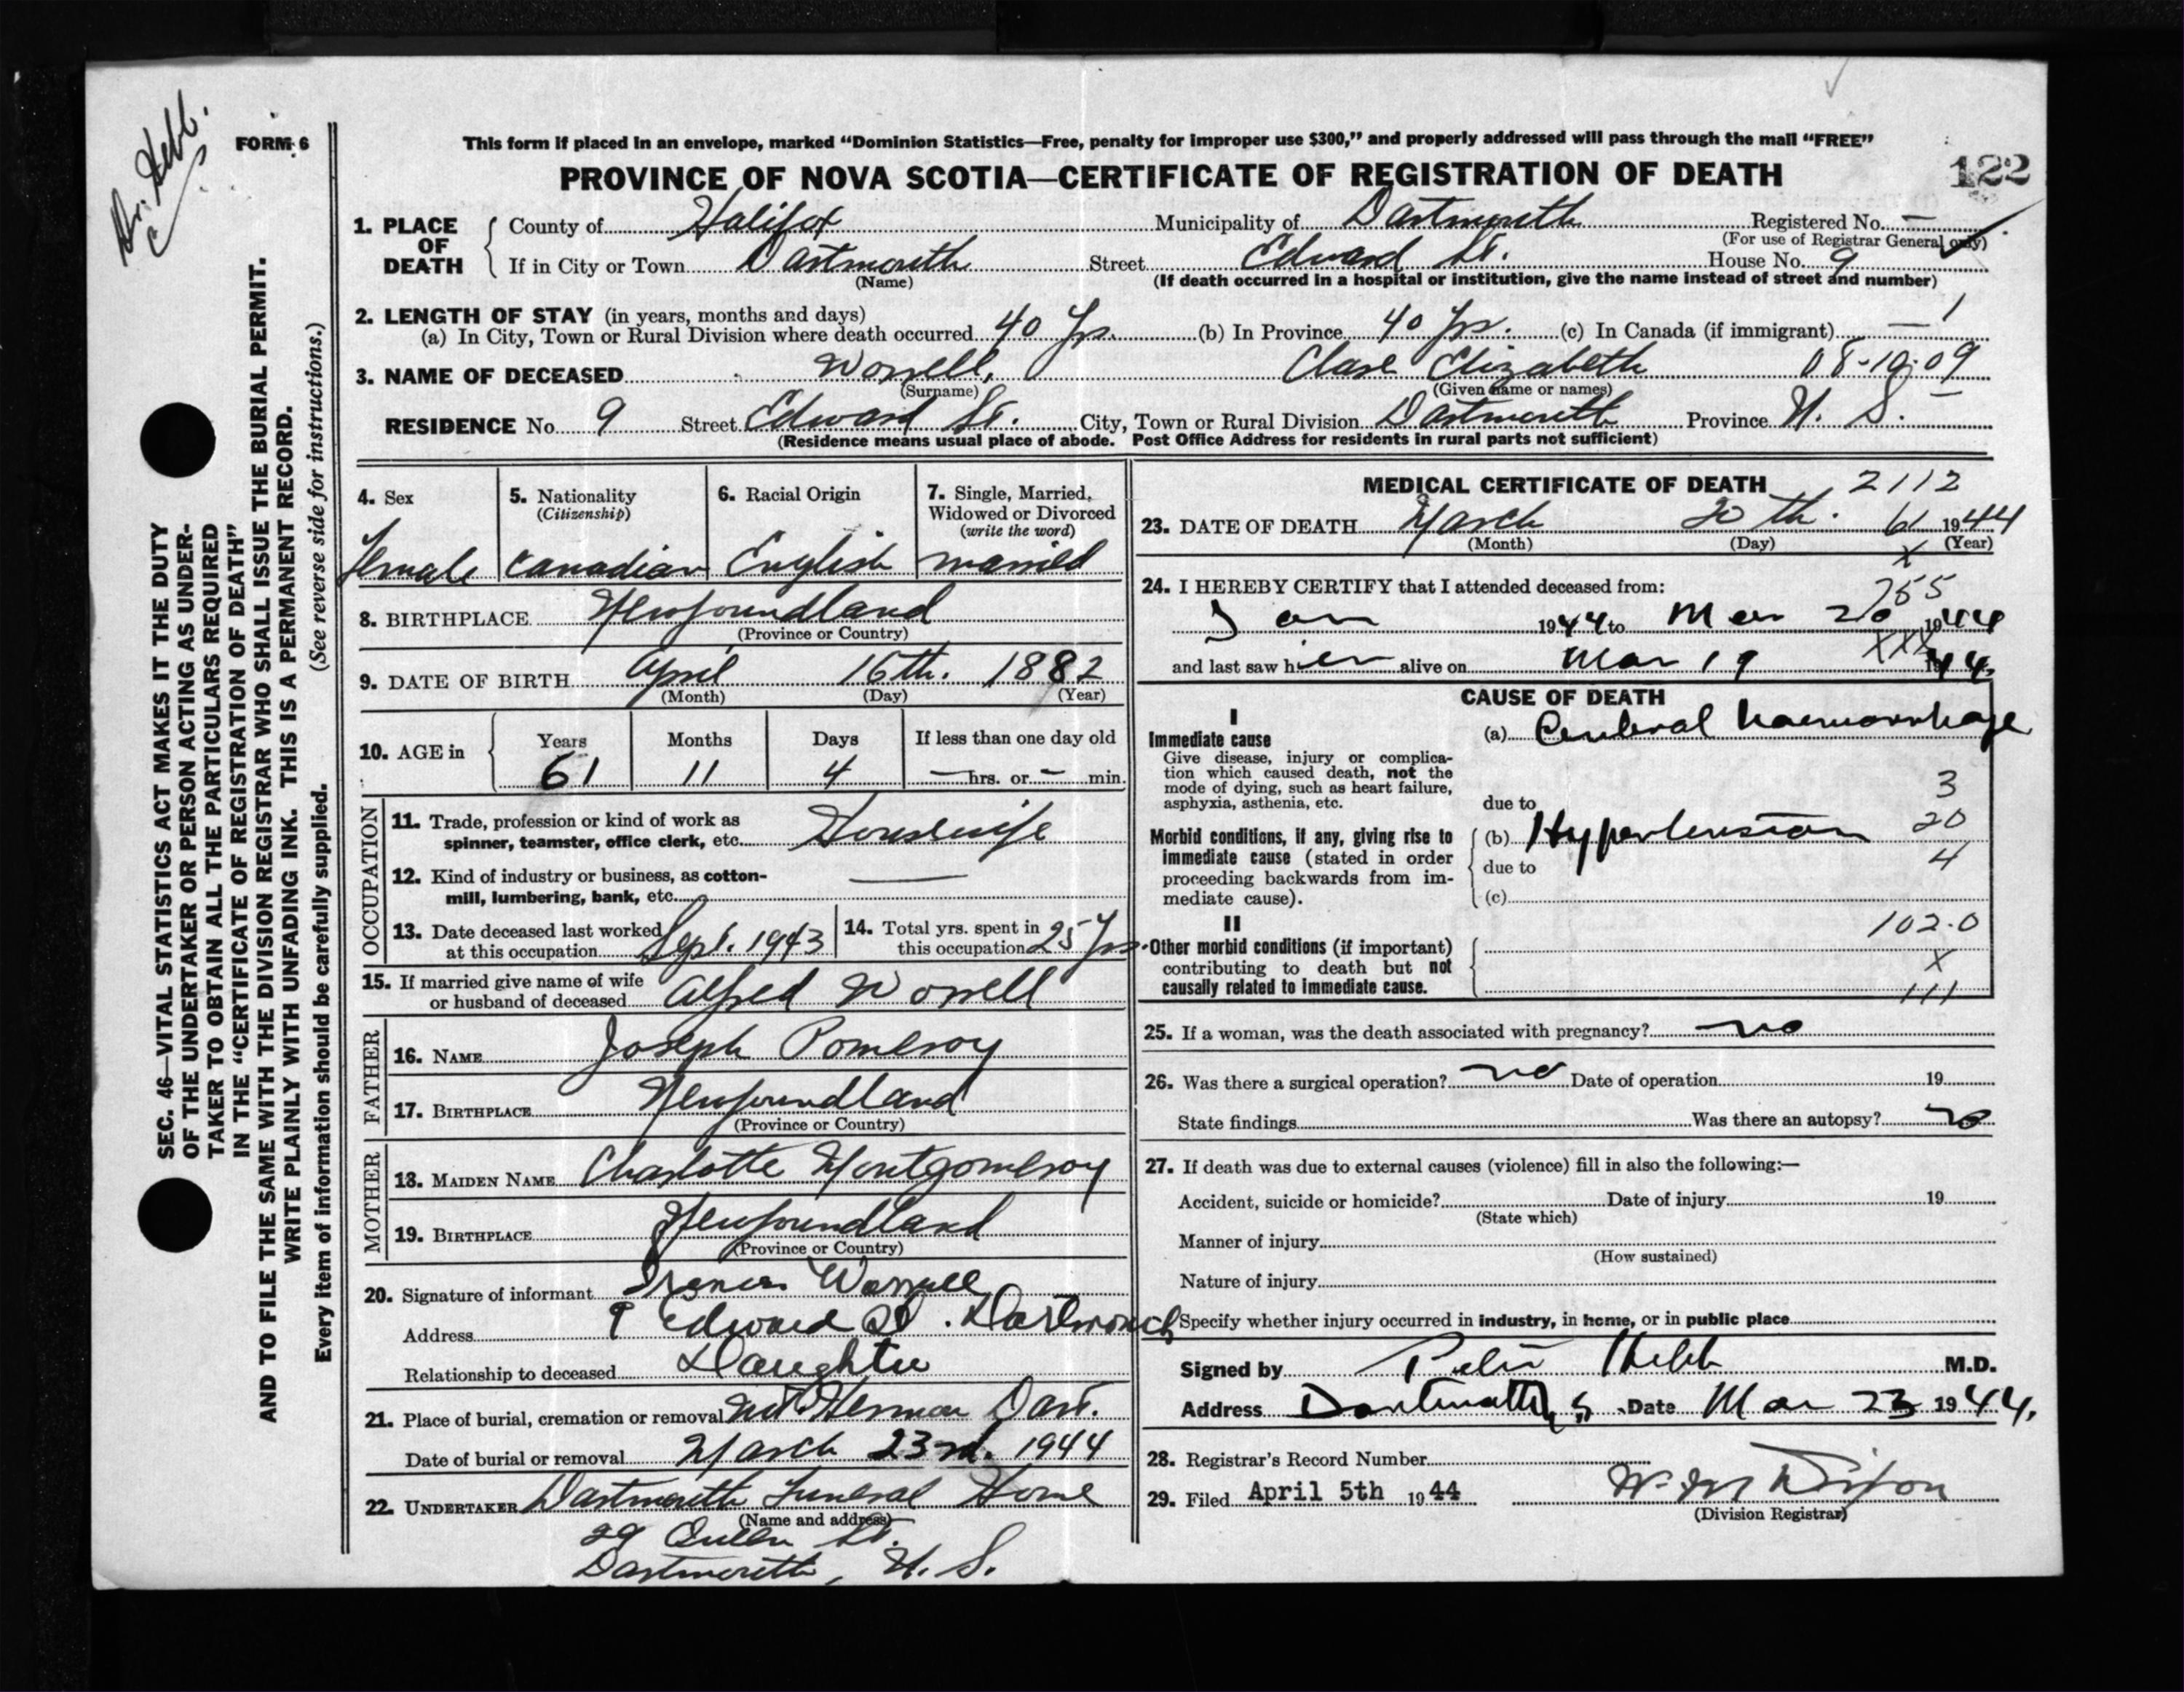 Dr. Hebb.
FORM 6
This form if placed in an envelope, marked “Dominion Statistics—Free, penalty for improper use $300,” and properly addressed will pass through the mail “FREE”
122
PROVINCE OF NOVA SCOTIA—CERTIFICATE OF REGISTRATION OF DEATH
1. PLACE OF DEATH
County of Halifax Municipality of Dartmouth Registered No. —
(For use of Registrar General only)
If in City or Town Dartmouth Street Edward St. House No. 9
(Name) (If death occurred in a hospital or institution, give the name instead of street and number)
2. LENGTH OF STAY (in years, months and days)
(a) In City, Town or Rural Division where death occurred 40 Yrs. (b) In Province 40 Yrs. (c) In Canada (if immigrant) — 1
3. NAME OF DECEASED Worrell, Clare Elizabeth 08-10-09
(Surname) (Given name or names)
RESIDENCE No. 9 Street Edward St. City, Town or Rural Division Dartmouth Province N. S. —
(Residence means usual place of abode. Post Office Address for residents in rural parts not sufficient)
4. Sex
Female
5. Nationality
(Citizenship)
Canadian
6. Racial Origin
English
7. Single, Married, Widowed or Divorced
(write the word)
married
8. BIRTHPLACE Newfoundland
(Province or Country)
9. DATE OF BIRTH April 16th. 1882
(Month) (Day) (Year)
10. AGE in
Years Months Days If less than one day old
61 11 4 — hrs. or — min.
OCCUPATION
11. Trade, profession or kind of work as
spinner, teamster, office clerk, etc. Housewife
12. Kind of industry or business, as cotton-
mill, lumbering, bank, etc. —
13. Date deceased last worked
at this occupation Sept. 1943
14. Total yrs. spent in
this occupation 25 Yrs.
15. If married give name of wife
or husband of deceased Alfred Worrell
FATHER
16. NAME Joseph Pomeroy
17. BIRTHPLACE Newfoundland
(Province or Country)
MOTHER
18. MAIDEN NAME Charlotte Montgomeroy
19. BIRTHPLACE Newfoundland
(Province or Country)
20. Signature of informant Worrell
Address 9 Edward St. Dartmouth
Relationship to deceased Daughter
21. Place of burial, cremation or removal Mt. Hermon Dart.
Date of burial or removal March 23rd. 1944
22. UNDERTAKER Dartmouth Funeral Home
(Name and address)
29 Queen St.
Dartmouth, N. S.
MEDICAL CERTIFICATE OF DEATH 2112
23. DATE OF DEATH March 20th. 61 1944
(Month) (Day) (Year)
X
24. I HEREBY CERTIFY that I attended deceased from:
255
Jan 1944 to Mar 20 1944
XXX
and last saw her alive on Mar 19 1944.
CAUSE OF DEATH
I
Immediate cause
Give disease, injury or complica-
tion which caused death, not the
mode of dying, such as heart failure,
asphyxia, asthenia, etc.
(a) Cerebral haemorrhage
3
due to
Morbid conditions, if any, giving rise to
immediate cause (stated in order
proceeding backwards from im-
mediate cause).
(b) Hypertension 20
due to 4
(c)
II
Other morbid conditions (if important)
contributing to death but not
causally related to immediate cause.
102.0
X
111
25. If a woman, was the death associated with pregnancy? no
26. Was there a surgical operation? no Date of operation 19
State findings Was there an autopsy? no
27. If death was due to external causes (violence) fill in also the following:—
Accident, suicide or homicide? Date of injury 19
(State which)
Manner of injury
(How sustained)
Nature of injury
Specify whether injury occurred in industry, in home, or in public place
Signed by Peter Hebb M.D.
Address Dartmouth N S Date Mar 23 1944.
28. Registrar's Record Number
29. Filed April 5th 1944
(Division Registrar)
SEC. 46—VITAL STATISTICS ACT MAKES IT THE DUTY
OF THE UNDERTAKER OR PERSON ACTING AS UNDER-
TAKER TO OBTAIN ALL THE PARTICULARS REQUIRED
IN THE “CERTIFICATE OF REGISTRATION OF DEATH”
AND TO FILE THE SAME WITH THE DIVISION REGISTRAR WHO SHALL ISSUE THE BURIAL PERMIT.
WRITE PLAINLY WITH UNFADING INK. THIS IS A PERMANENT RECORD.
Every item of information should be carefully supplied. (See reverse side for instructions.)